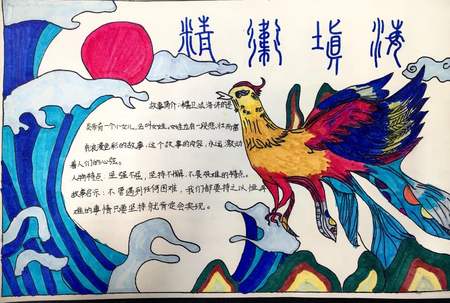 精卫填海
故事简介:精卫填海讲的是
炎帝有一个小女儿,名叫女娃,女娃也有一段悲壮而带
有浪漫色彩的故事,这个故事的内容,永远激动
着人们的心弦。
人物特点 坚强不屈,坚持不懈,不畏艰难的精点
故事启示:不管遇到任何困难,我们都要持之以恒再
难的事情只要坚持就肯定会实现。